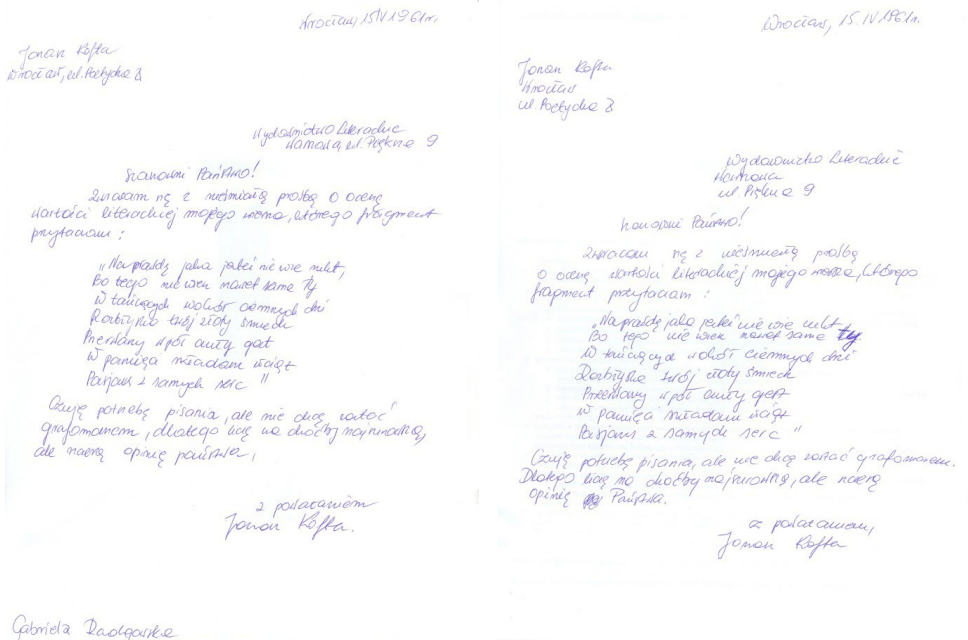 Wrocław, 15 IV 1961r.
Jonasz Kofta
Wrocław, ul. Poetycka 8
Wydawnictwo Literackie
Warszawa, ul. Piękna 9
Szanowni Państwo!
Zwracam się z nieśmiałą prośbą o ocenę
wartości literackiej mojego wiersza, którego fragment
przytaczam :
„Naprawdę jaka jesteś nie wie nikt,
Bo tego nie wiesz nawet sama Ty
W tańczących wokół ciemnych dni
Rozbłyska twój złoty śmiech
Przerwany wpół czuły gest
W pamięci składam wciąż
Pasjans z samych serc”
Czuję potrzebę pisania, ale nie chcę zostać
grafomanem, dlatego liczę na choćby najsurowszą,
ale rzeczną opinię państwa,
z poważaniem
Jonasz Kofta.
Gabriela
Wrocław, 15. IV 1961r.
Jonasz Kofta
Wrocław
ul. Poetycka 8
Wydawnictwo Literackie
Warszawa
ul. Piękna 9
Szanowni Państwo!
Zwracam się z nieśmiałą prośbą
o ocenę wartości literackiej mojego wiersza, którego
fragment przytaczam :
„Naprawdę jaka jesteś nie wie nikt
Bo tego nie wiesz nawet sama ty
W tańczących wokół ciemnych dni
Rozbłyska twój złoty śmiech
Przerwany wpół czuły gest
W pamięci składam wciąż
Pasjans z samych serc”
Czuję potrzebę pisania, ale nie chcę zostać grafomanem.
Dlatego liczę na choćby najsurowszą, ale rzeczną
opinię Państwa.
z poważaniem,
Jonasz Kofta